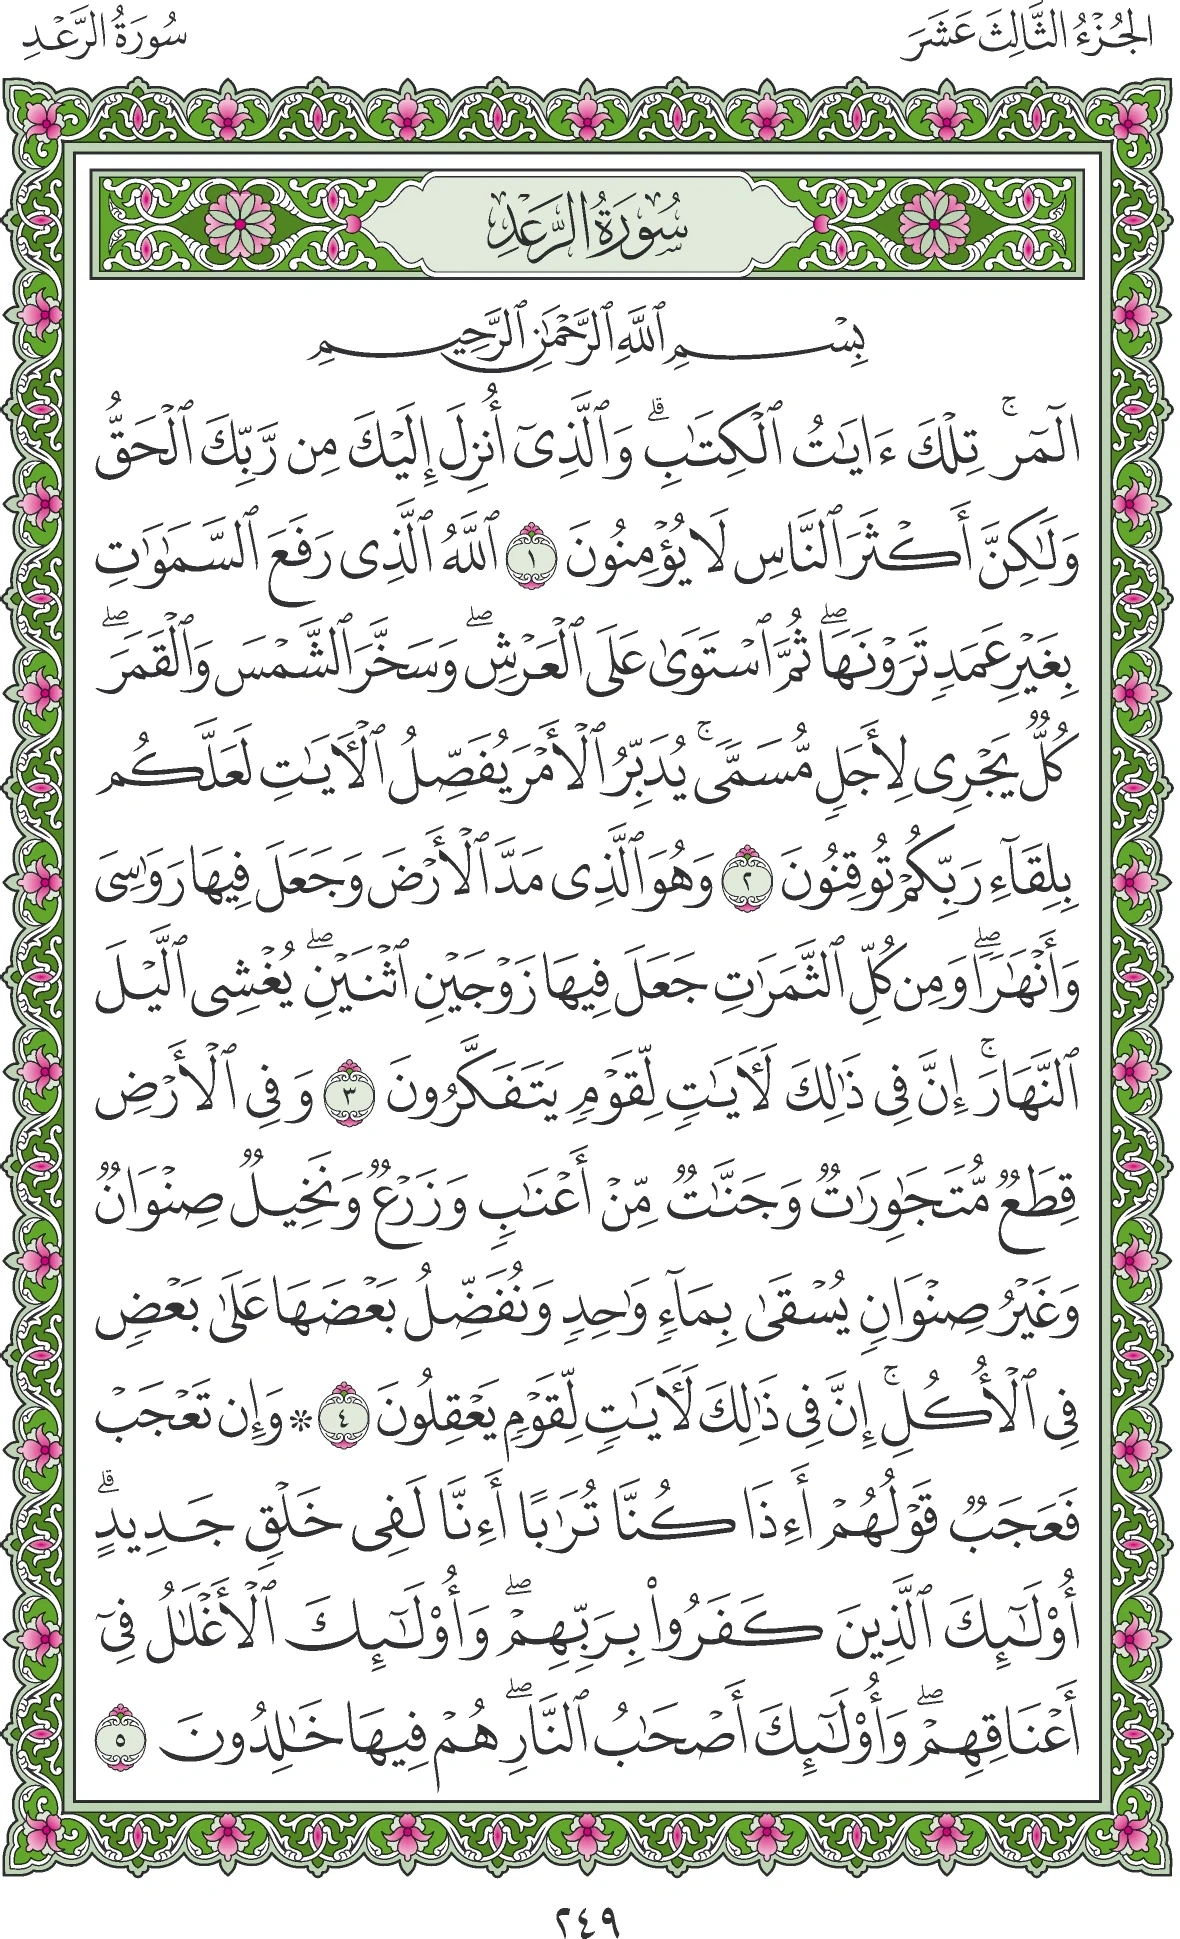 الجُزْءُ الثَّالِثَ عَشَرَ
سُورَةُ الرَّعْدِ
سُورَةُ الرَّعْدِ
بِسْمِ ٱللَّهِ ٱلرَّحْمَٰنِ ٱلرَّحِيمِ
الٓمٓرۚ تِلْكَ ءَايَٰتُ ٱلْكِتَٰبِۗ وَٱلَّذِىٓ أُنزِلَ إِلَيْكَ مِن رَّبِّكَ ٱلْحَقُّ
وَلَٰكِنَّ أَكْثَرَ ٱلنَّاسِ لَا يُؤْمِنُونَ ١ ٱللَّهُ ٱلَّذِى رَفَعَ ٱلسَّمَٰوَٰتِ
بِغَيْرِ عَمَدٍ تَرَوْنَهَاۖ ثُمَّ ٱسْتَوَىٰ عَلَى ٱلْعَرْشِۖ وَسَخَّرَ ٱلشَّمْسَ وَٱلْقَمَرَۖ
كُلٌّ يَجْرِى لِأَجَلٍ مُّسَمًّىۚ يُدَبِّرُ ٱلْأَمْرَ يُفَصِّلُ ٱلْءَايَٰتِ لَعَلَّكُم
بِلِقَآءِ رَبِّكُمْ تُوقِنُونَ ٢ وَهُوَ ٱلَّذِى مَدَّ ٱلْأَرْضَ وَجَعَلَ فِيهَا رَوَٰسِىَ
وَأَنْهَٰرًاۖ وَمِن كُلِّ ٱلثَّمَرَٰتِ جَعَلَ فِيهَا زَوْجَيْنِ ٱثْنَيْنِۖ يُغْشِى ٱلَّيْلَ
ٱلنَّهَارَۚ إِنَّ فِى ذَٰلِكَ لَءَايَٰتٍ لِّقَوْمٍ يَتَفَكَّرُونَ ٣ وَفِى ٱلْأَرْضِ
قِطَعٌ مُّتَجَٰوِرَٰتٌ وَجَنَّٰتٌ مِّنْ أَعْنَٰبٍ وَزَرْعٌ وَنَخِيلٌ صِنْوَانٌ
وَغَيْرُ صِنْوَانٍ يُسْقَىٰ بِمَآءٍ وَٰحِدٍ وَنُفَضِّلُ بَعْضَهَا عَلَىٰ بَعْضٍ
فِى ٱلْأُكُلِۚ إِنَّ فِى ذَٰلِكَ لَءَايَٰتٍ لِّقَوْمٍ يَعْقِلُونَ ٤ ۞ وَإِن تَعْجَبْ
فَعَجَبٌ قَوْلُهُمْ أَءِذَا كُنَّا تُرَٰبًا أَءِنَّا لَفِى خَلْقٍ جَدِيدٍۗ
أُو۟لَٰٓئِكَ ٱلَّذِينَ كَفَرُوا۟ بِرَبِّهِمْۖ وَأُو۟لَٰٓئِكَ ٱلْأَغْلَٰلُ فِىٓ
أَعْنَاقِهِمْۖ وَأُو۟لَٰٓئِكَ أَصْحَٰبُ ٱلنَّارِۖ هُمْ فِيهَا خَٰلِدُونَ ٥
٢٤٩